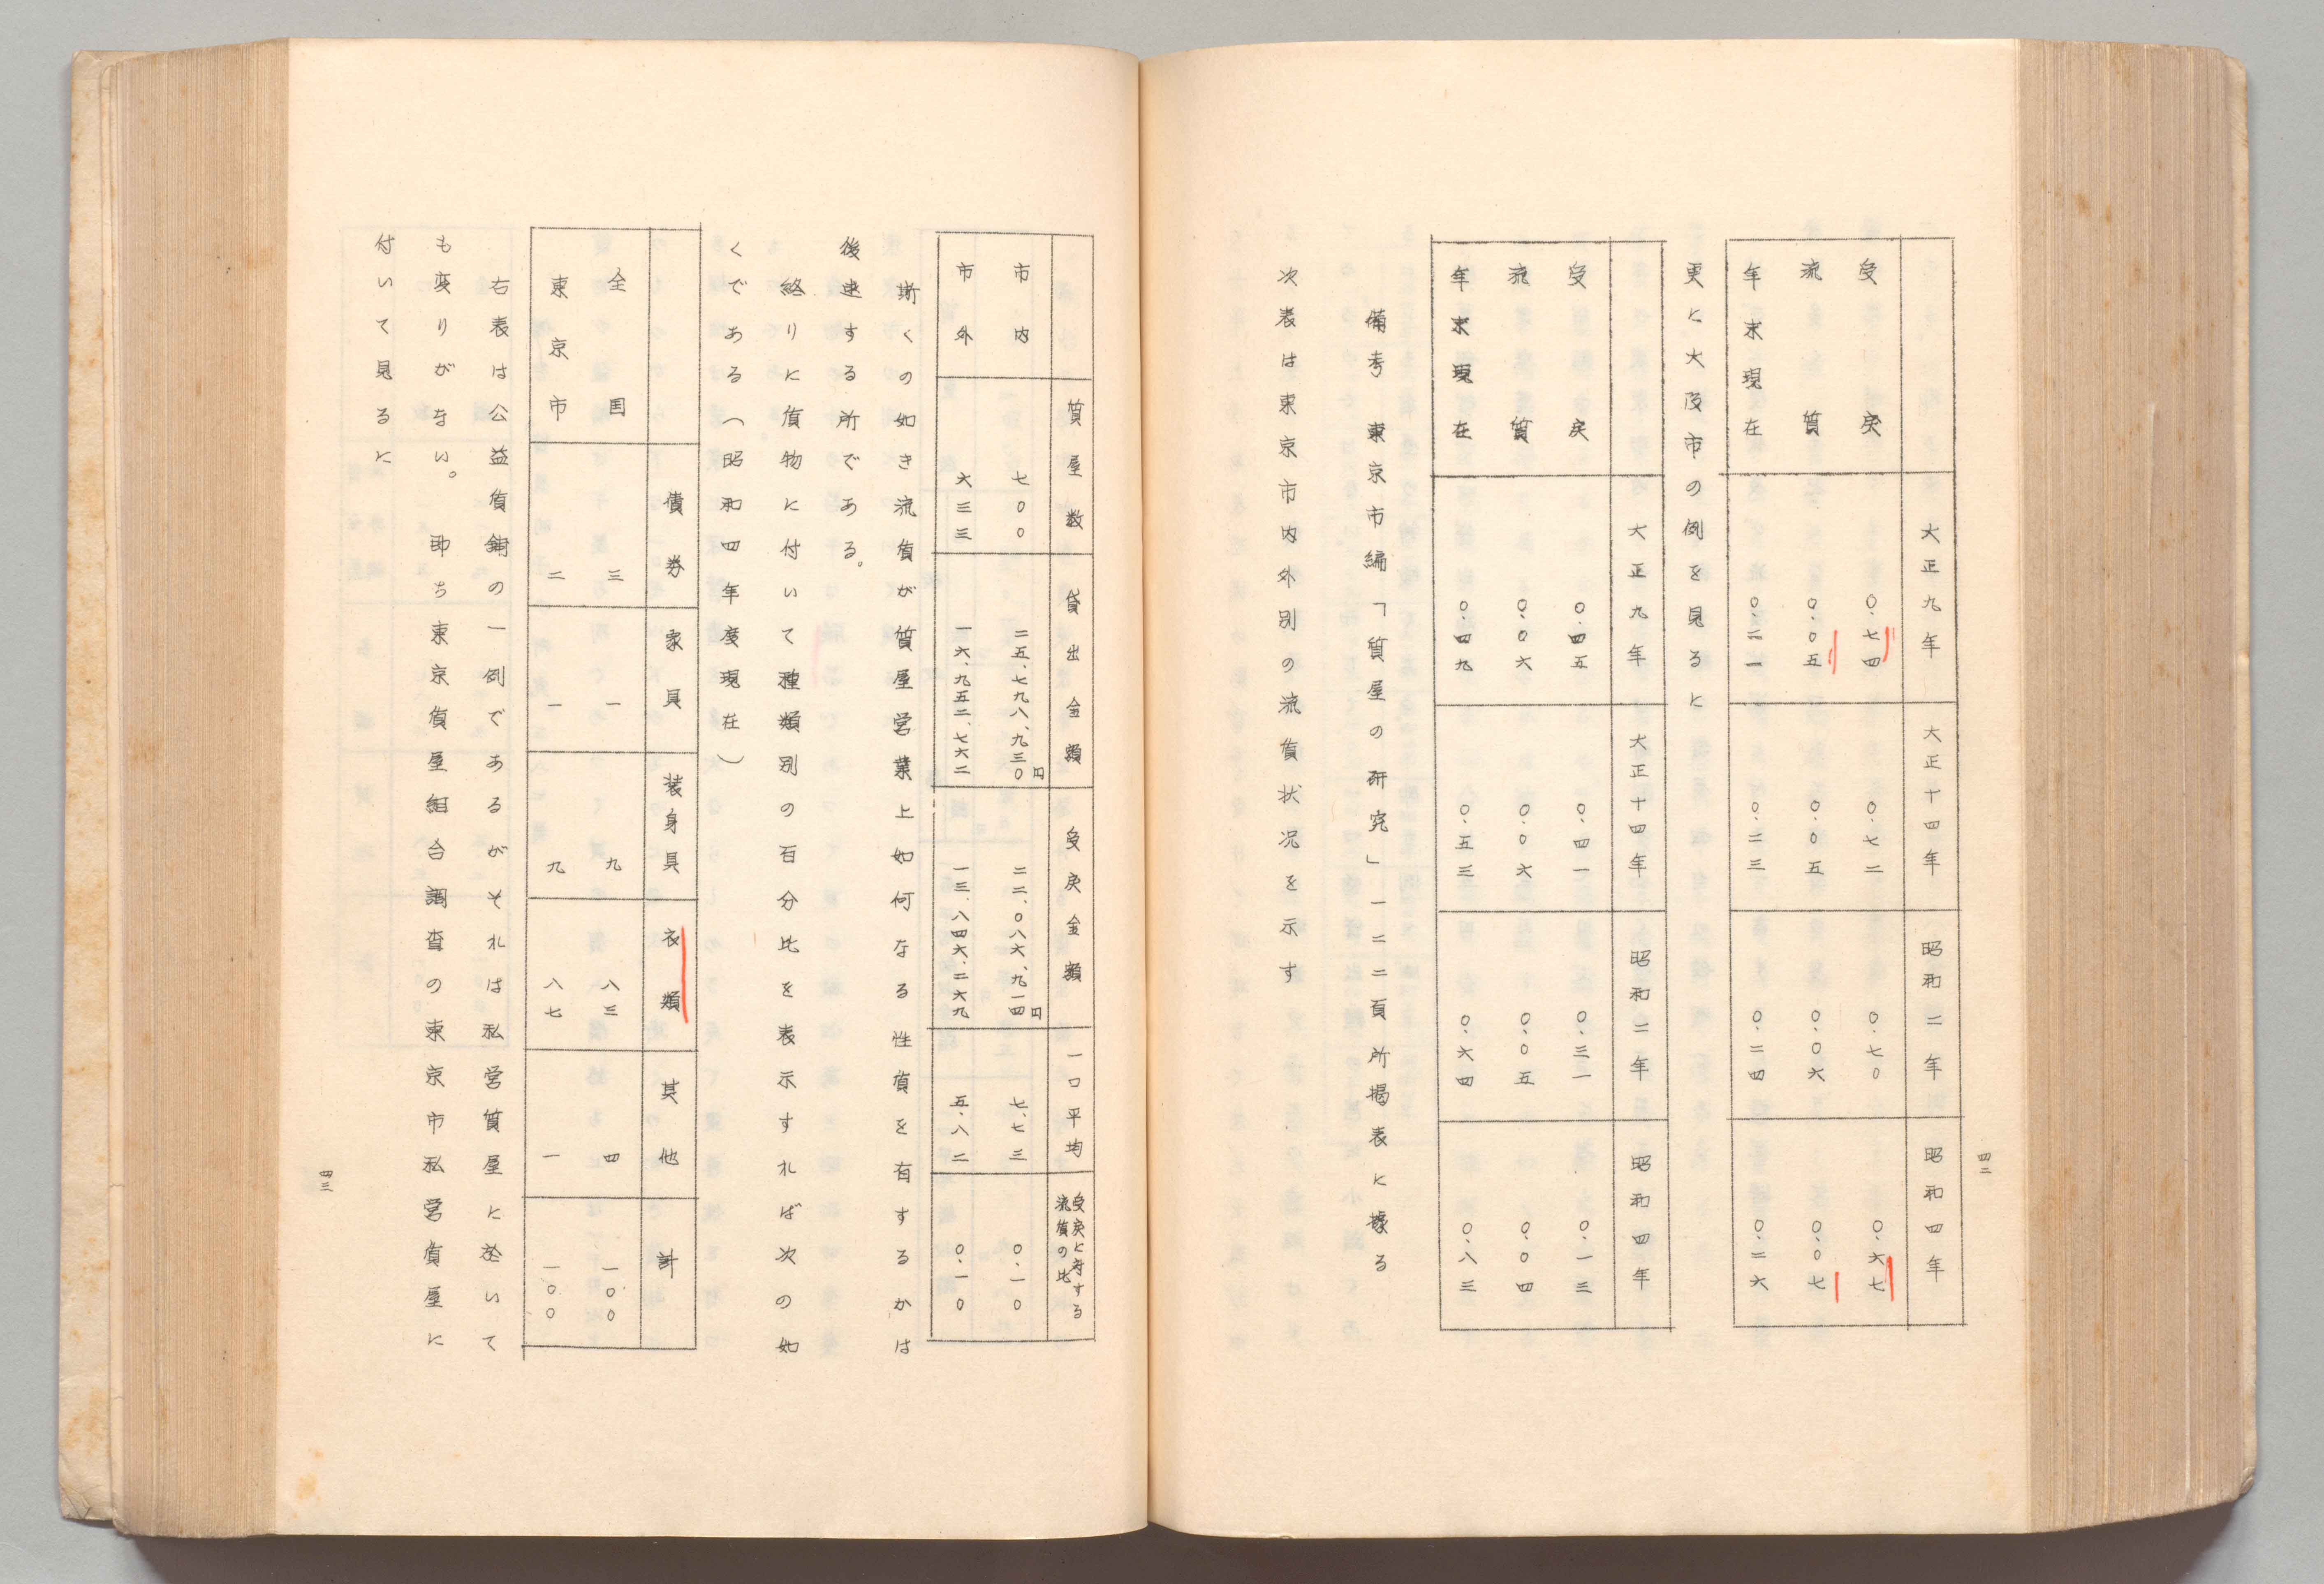 四二
大正九年 大正十四年 昭和二年 昭和四年
受戻 〇.七四 〇.七二 〇.七〇 〇.六七
流質 〇.〇五 〇.〇五 〇.〇六 〇.〇七
年末現在 〇.二一 〇.二三 〇.二四 〇.二六
更に大阪市の例を見ると
大正九年 大正十四年 昭和二年 昭和四年
受戻 〇.四五 〇.四一 〇.三一 〇.一三
流質 〇.〇六 〇.〇六 〇.〇五 〇.〇四
年末現在 〇.四九 〇.五三 〇.六四 〇.八三
備考 東京市編「質屋の研究」一二二頁所掲表に據る
次表は東京市内外別の流質状況を示す
質屋数 貸出金額 受戻金額 一口平均 受戻に対する流質の比
市内 七〇〇 二五、七九八、九三〇円 二二、〇八六、九一四円 七、七三 〇.一〇
市外 六三三 一六、九五二、七六二 一三、八四六、二六九 五、八二 〇.一〇
斯くの如き流質が質屋営業上如何なる性質を有するかは
後述する所である。
終りに質物に付いて種類別の百分比を表示すれば次の如
くである（昭和四年度現在）
債券 家具 装身具 衣類 其他 計
全国 三 一 九 八三 四 一〇〇
東京市 二 一 九 八七 一 一〇〇
右表は公益質舗の一例であるがそれは私営質屋に於いて
も変りがない。 即ち東京質屋組合調査の東京市私営質屋に
付いて見ると
四三